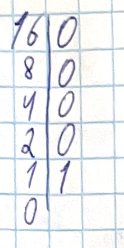 16 0
8 0
4 0
2 0
1 1
0